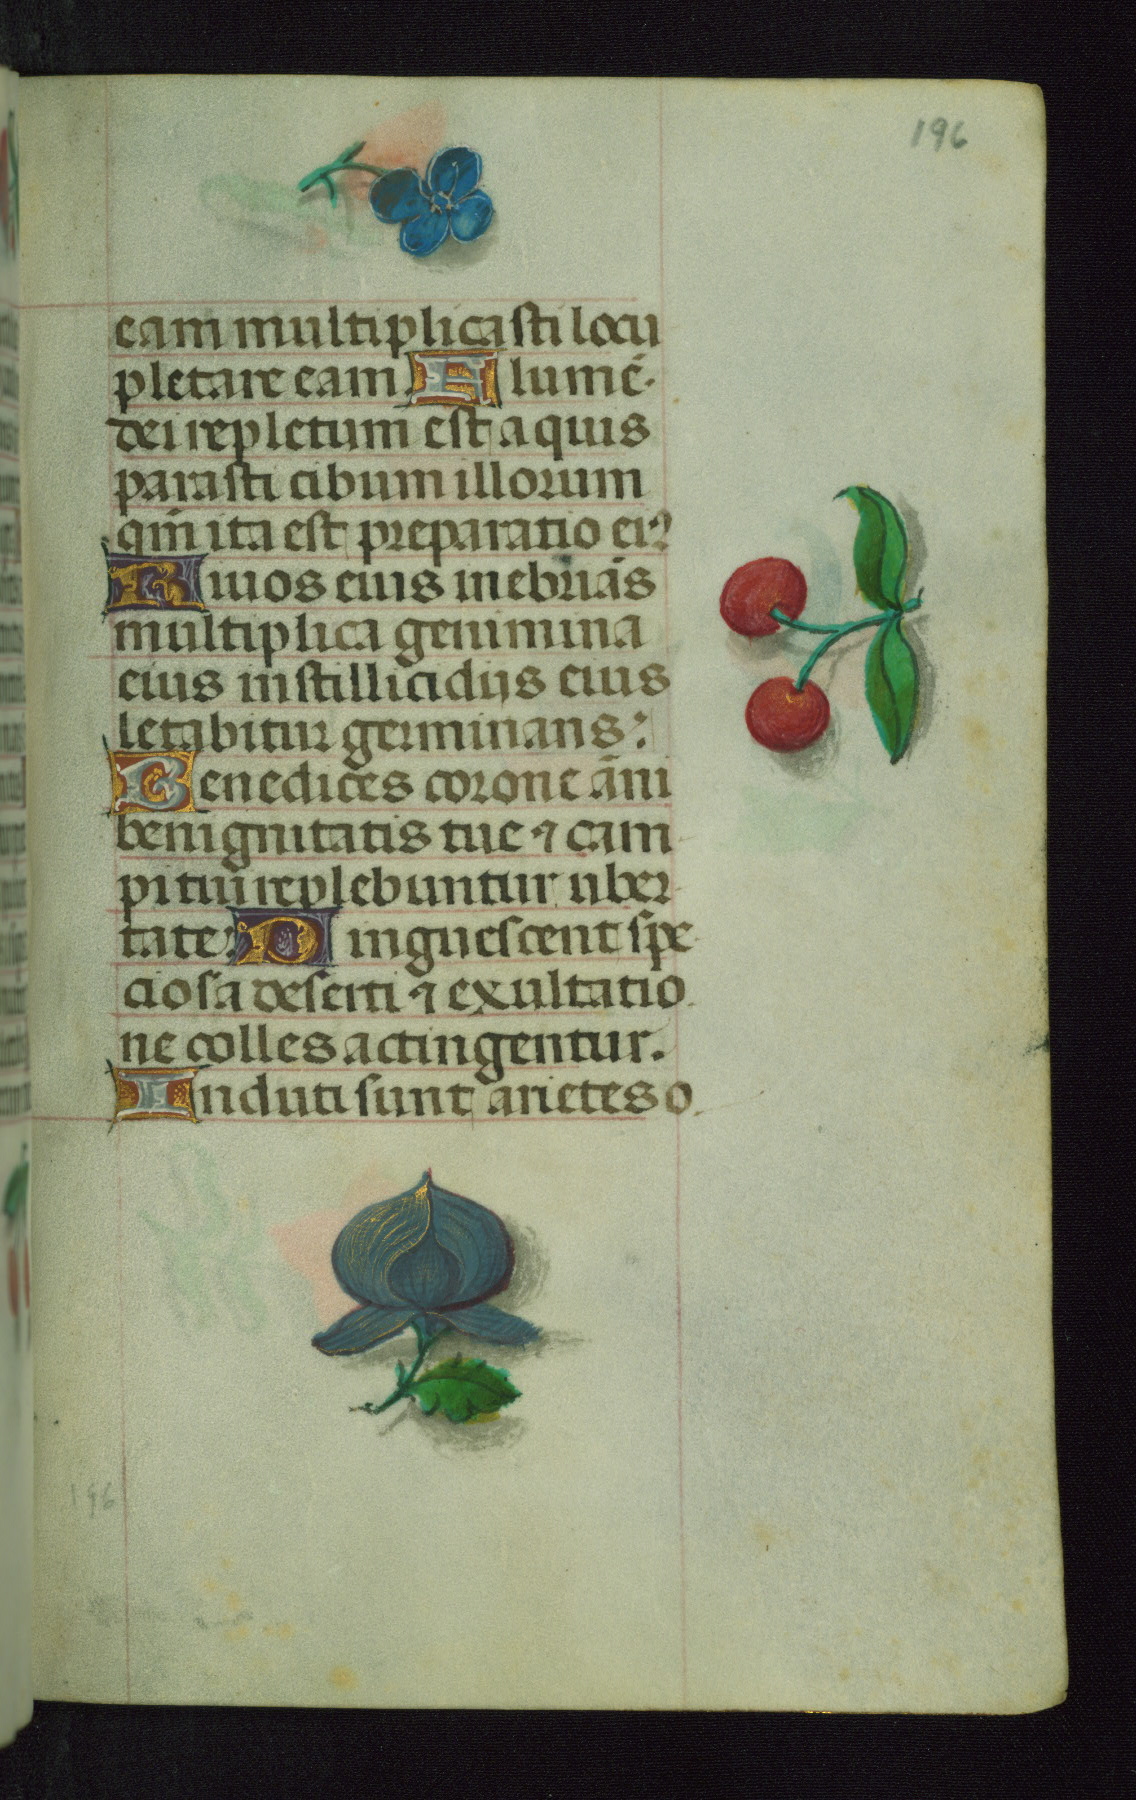 196
eam multiplicasti locu
pletare eam. Flumē
dei repletum est aquis
parasti cibum illorum
qm̄ ita est preparatio eiꝰ
Riuos eius inebriās
multiplica genimina
eius in stillicidijs eius
letabitur germinans:
Benedices corone āni
benignitatis tue ⁊ cam
pi tui replebuntur uber
tate: Pinguescent spe
ciosa deserti ⁊ exultatio
ne colles actingentur.
Induti sunt arietes o
196